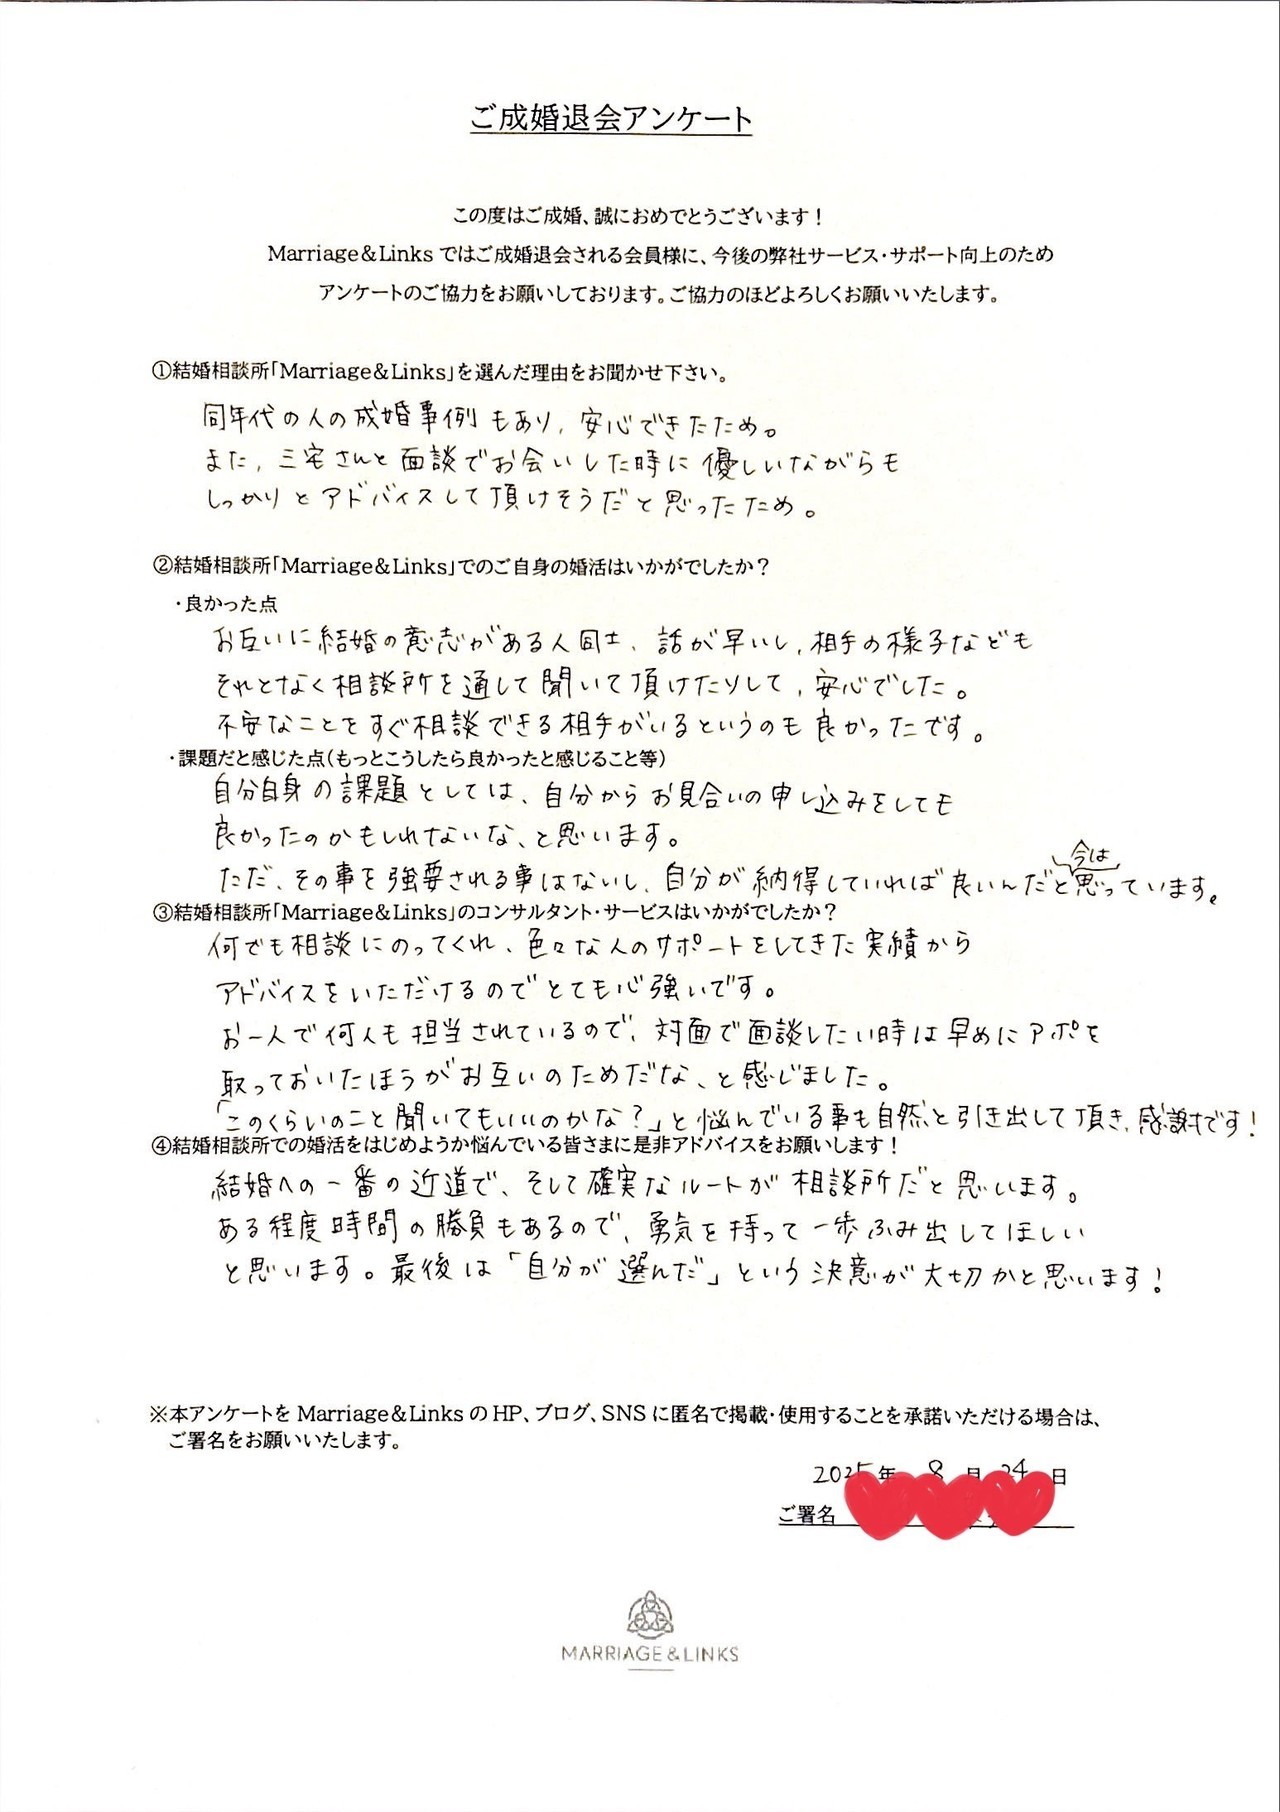 ご成婚退会アンケート
この度はご成婚、誠におめでとうございます！
Marriage&Links ではご成婚退会される会員様に、今後の弊社サービス・サポート向上のため
アンケートのご協力をお願いしております。ご協力のほどよろしくお願いいたします。
①結婚相談所「Marriage&Links」を選んだ理由をお聞かせ下さい。
同年代の人の成婚事例もあり、安心できたため。
また、三宅さんと面談でお会いした時に優しいながらも
しっかりとアドバイスして頂けそうだと思ったため。
②結婚相談所「Marriage&Links」でのご自身の婚活はいかがでしたか？
・良かった点
お互いに結婚の意志がある人同士、話が早いし、相手の様子なども
それとなく相談所を通して聞いて頂けたりして、安心でした。
不安なことをすぐ相談できる相手がいるというのも良かったです。
・課題だと感じた点（もっとこうしたら良かったと感じること等）
自分自身の課題としては、自分からお見合いの申し込みをしても
良かったのかもしれないな、と思います。
ただ、その事を強要される事はないし、自分が納得していれば良いんだと今は思っています。
③結婚相談所「Marriage&Links」のコンサルタント・サービスはいかがでしたか？
何でも相談にのってくれ、色々な人のサポートをしてきた実績から
アドバイスをいただけるのでとても心強いです。
お一人で何人も担当されているので、対面で面談したい時は早めにアポを
取っておいたほうがお互いのためだな、と感じました。
「このくらいのこと聞いてもいいのかな？」と悩んでいる事も自然と引き出して頂き、感謝です！
④結婚相談所での婚活をはじめようか悩んでいる皆さまに是非アドバイスをお願いします！
結婚への一番の近道で、そして確実なルートが相談所だと思います。
ある程度時間の勝負もあるので、勇気を持って一歩ふみ出してほしい
と思います。最後は「自分が選んだ」という決意が大切かと思います！
※本アンケートを Marriage&Links の HP、ブログ、SNS に匿名で掲載・使用することを承諾いただける場合は、
ご署名をお願いいたします。
2025年 8月 24日
ご署名
MARRIAGE&LINKS